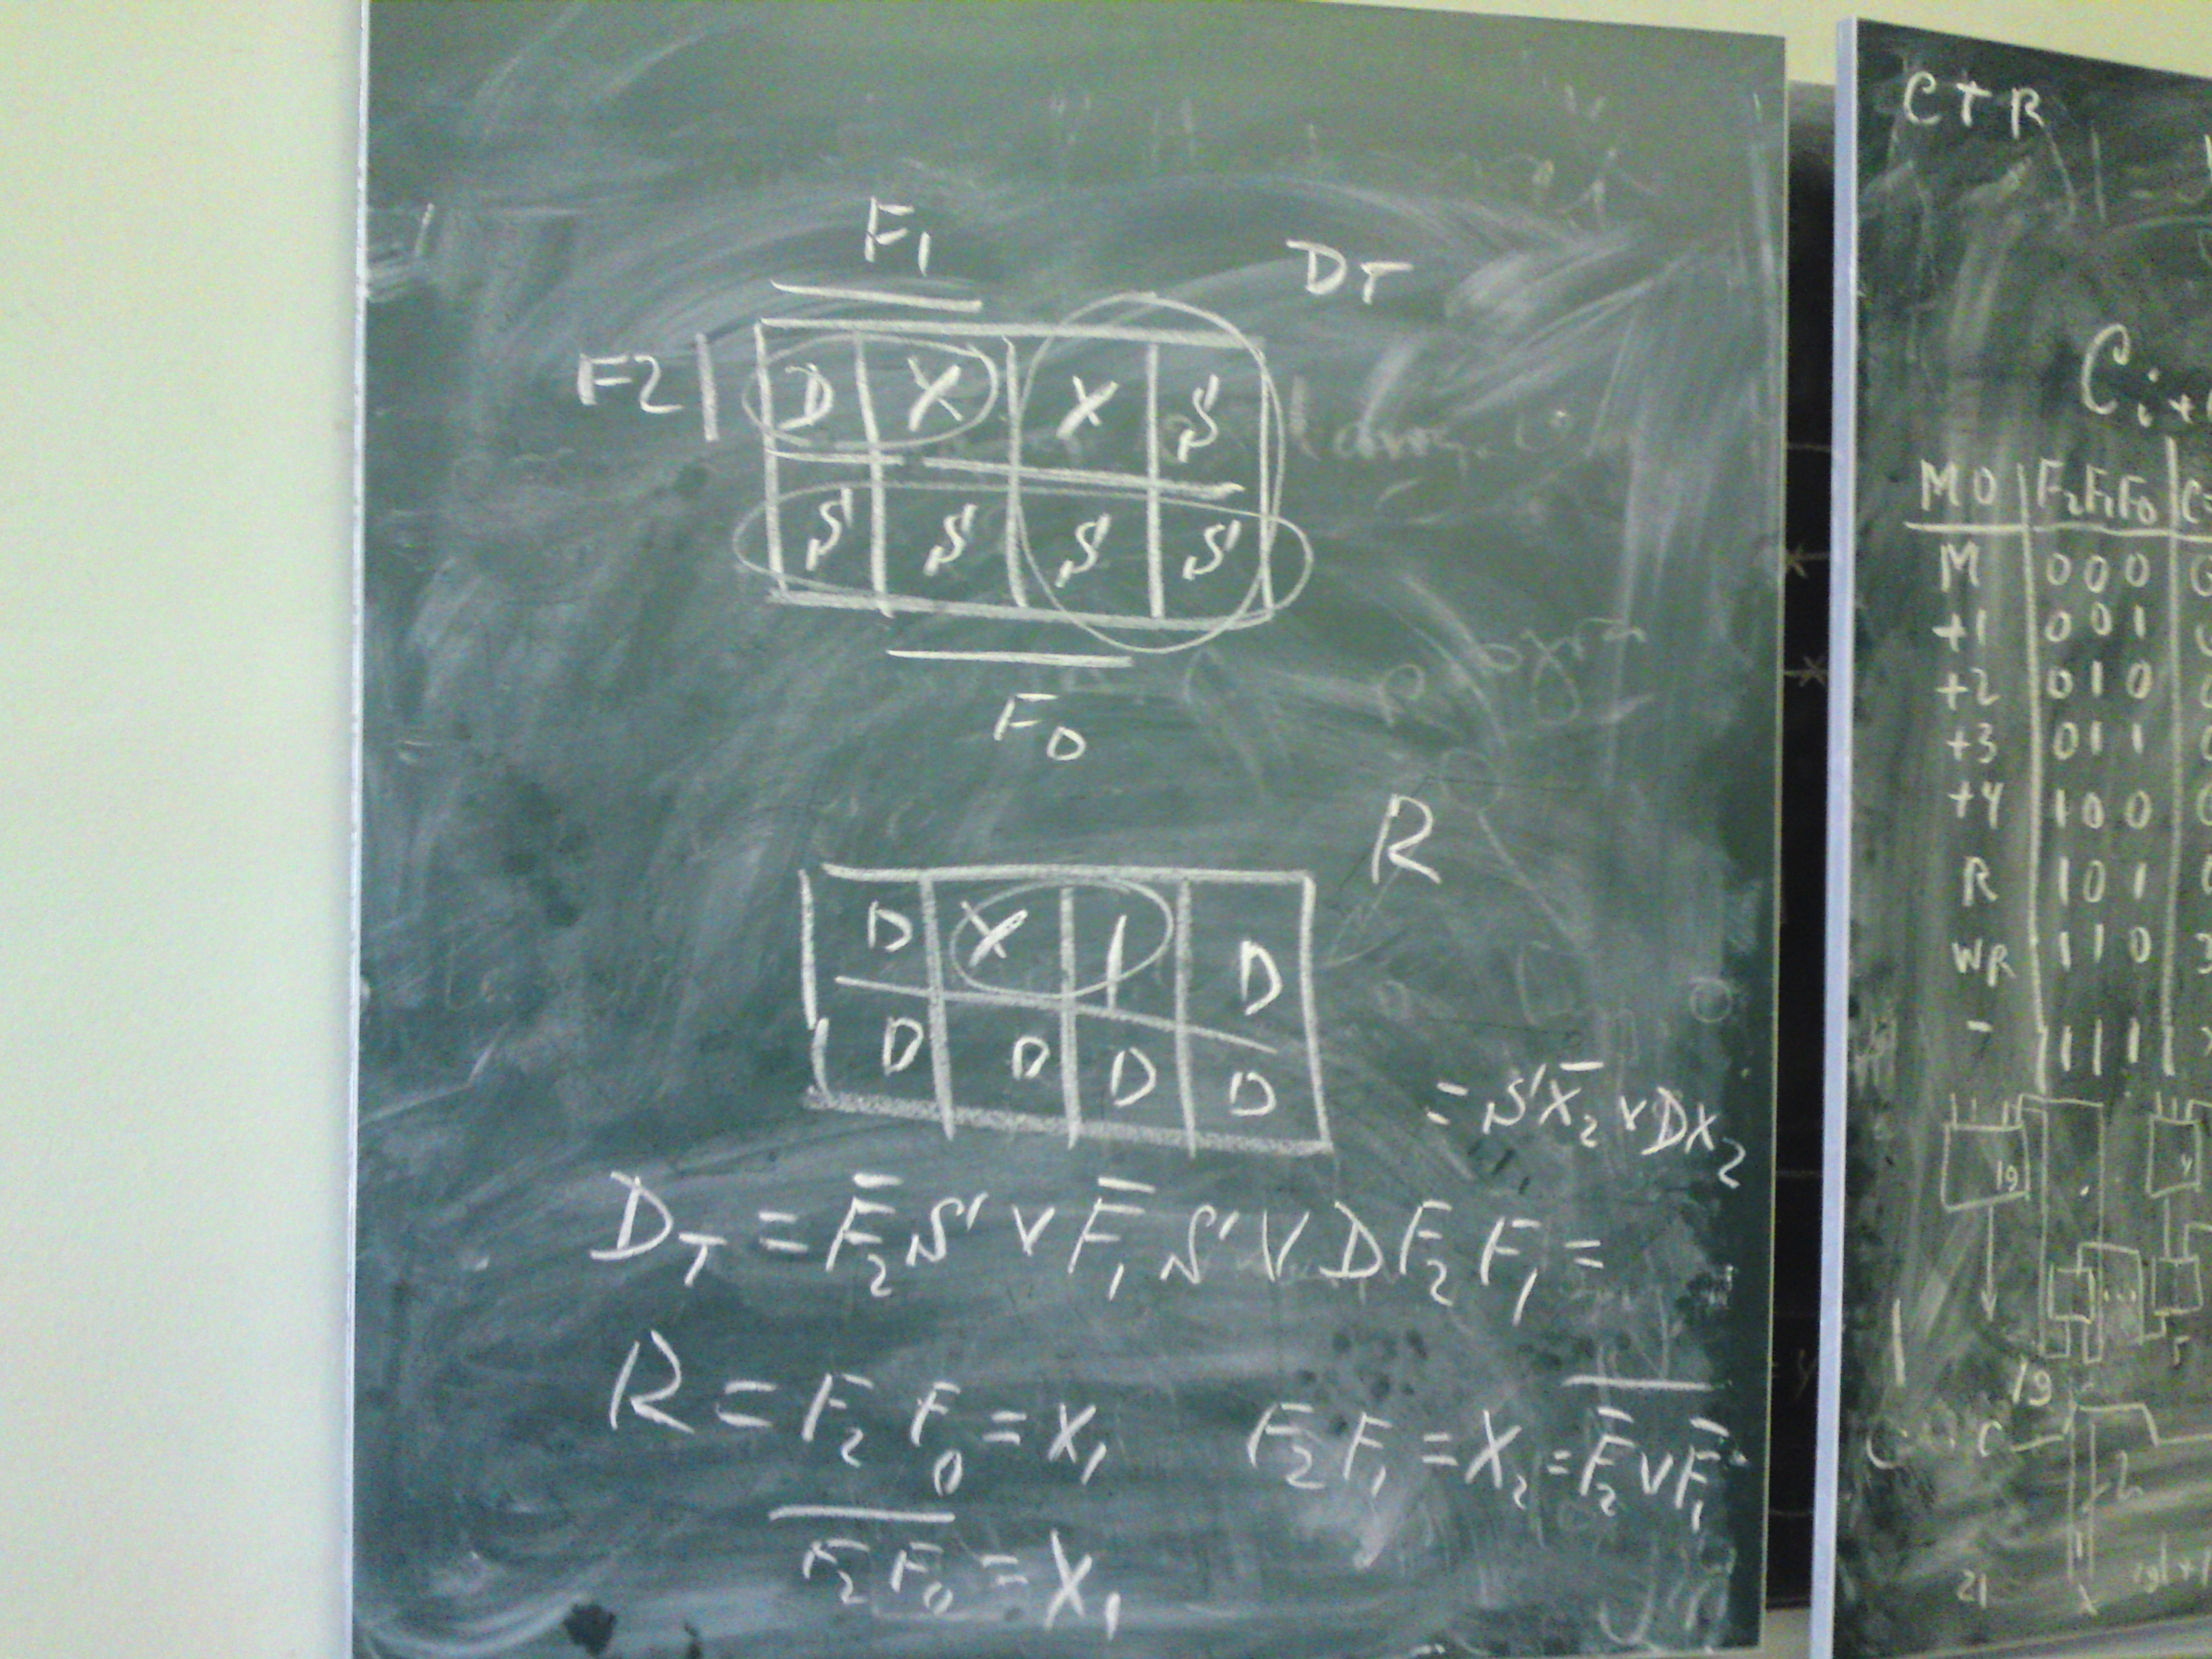 F1
DT
F2 D X X S
S S S S
F0
R
D X 1 D
D D D D
= S X̅2 ∨ D X2
DT = F̅2 S ∨ F̅1 S ∨ D F2 F1 =
R = F2 F0 = X1
F2 F1 = X2 = \overline{F̅2 ∨ F̅1}
\overline{F2 F0} = X1
CTR
Ci+
MO F2F1F0 C
M 000
+1 001
+2 010
+3 011
+4 100
R 101
WR 110
- 111
19
19
C
21